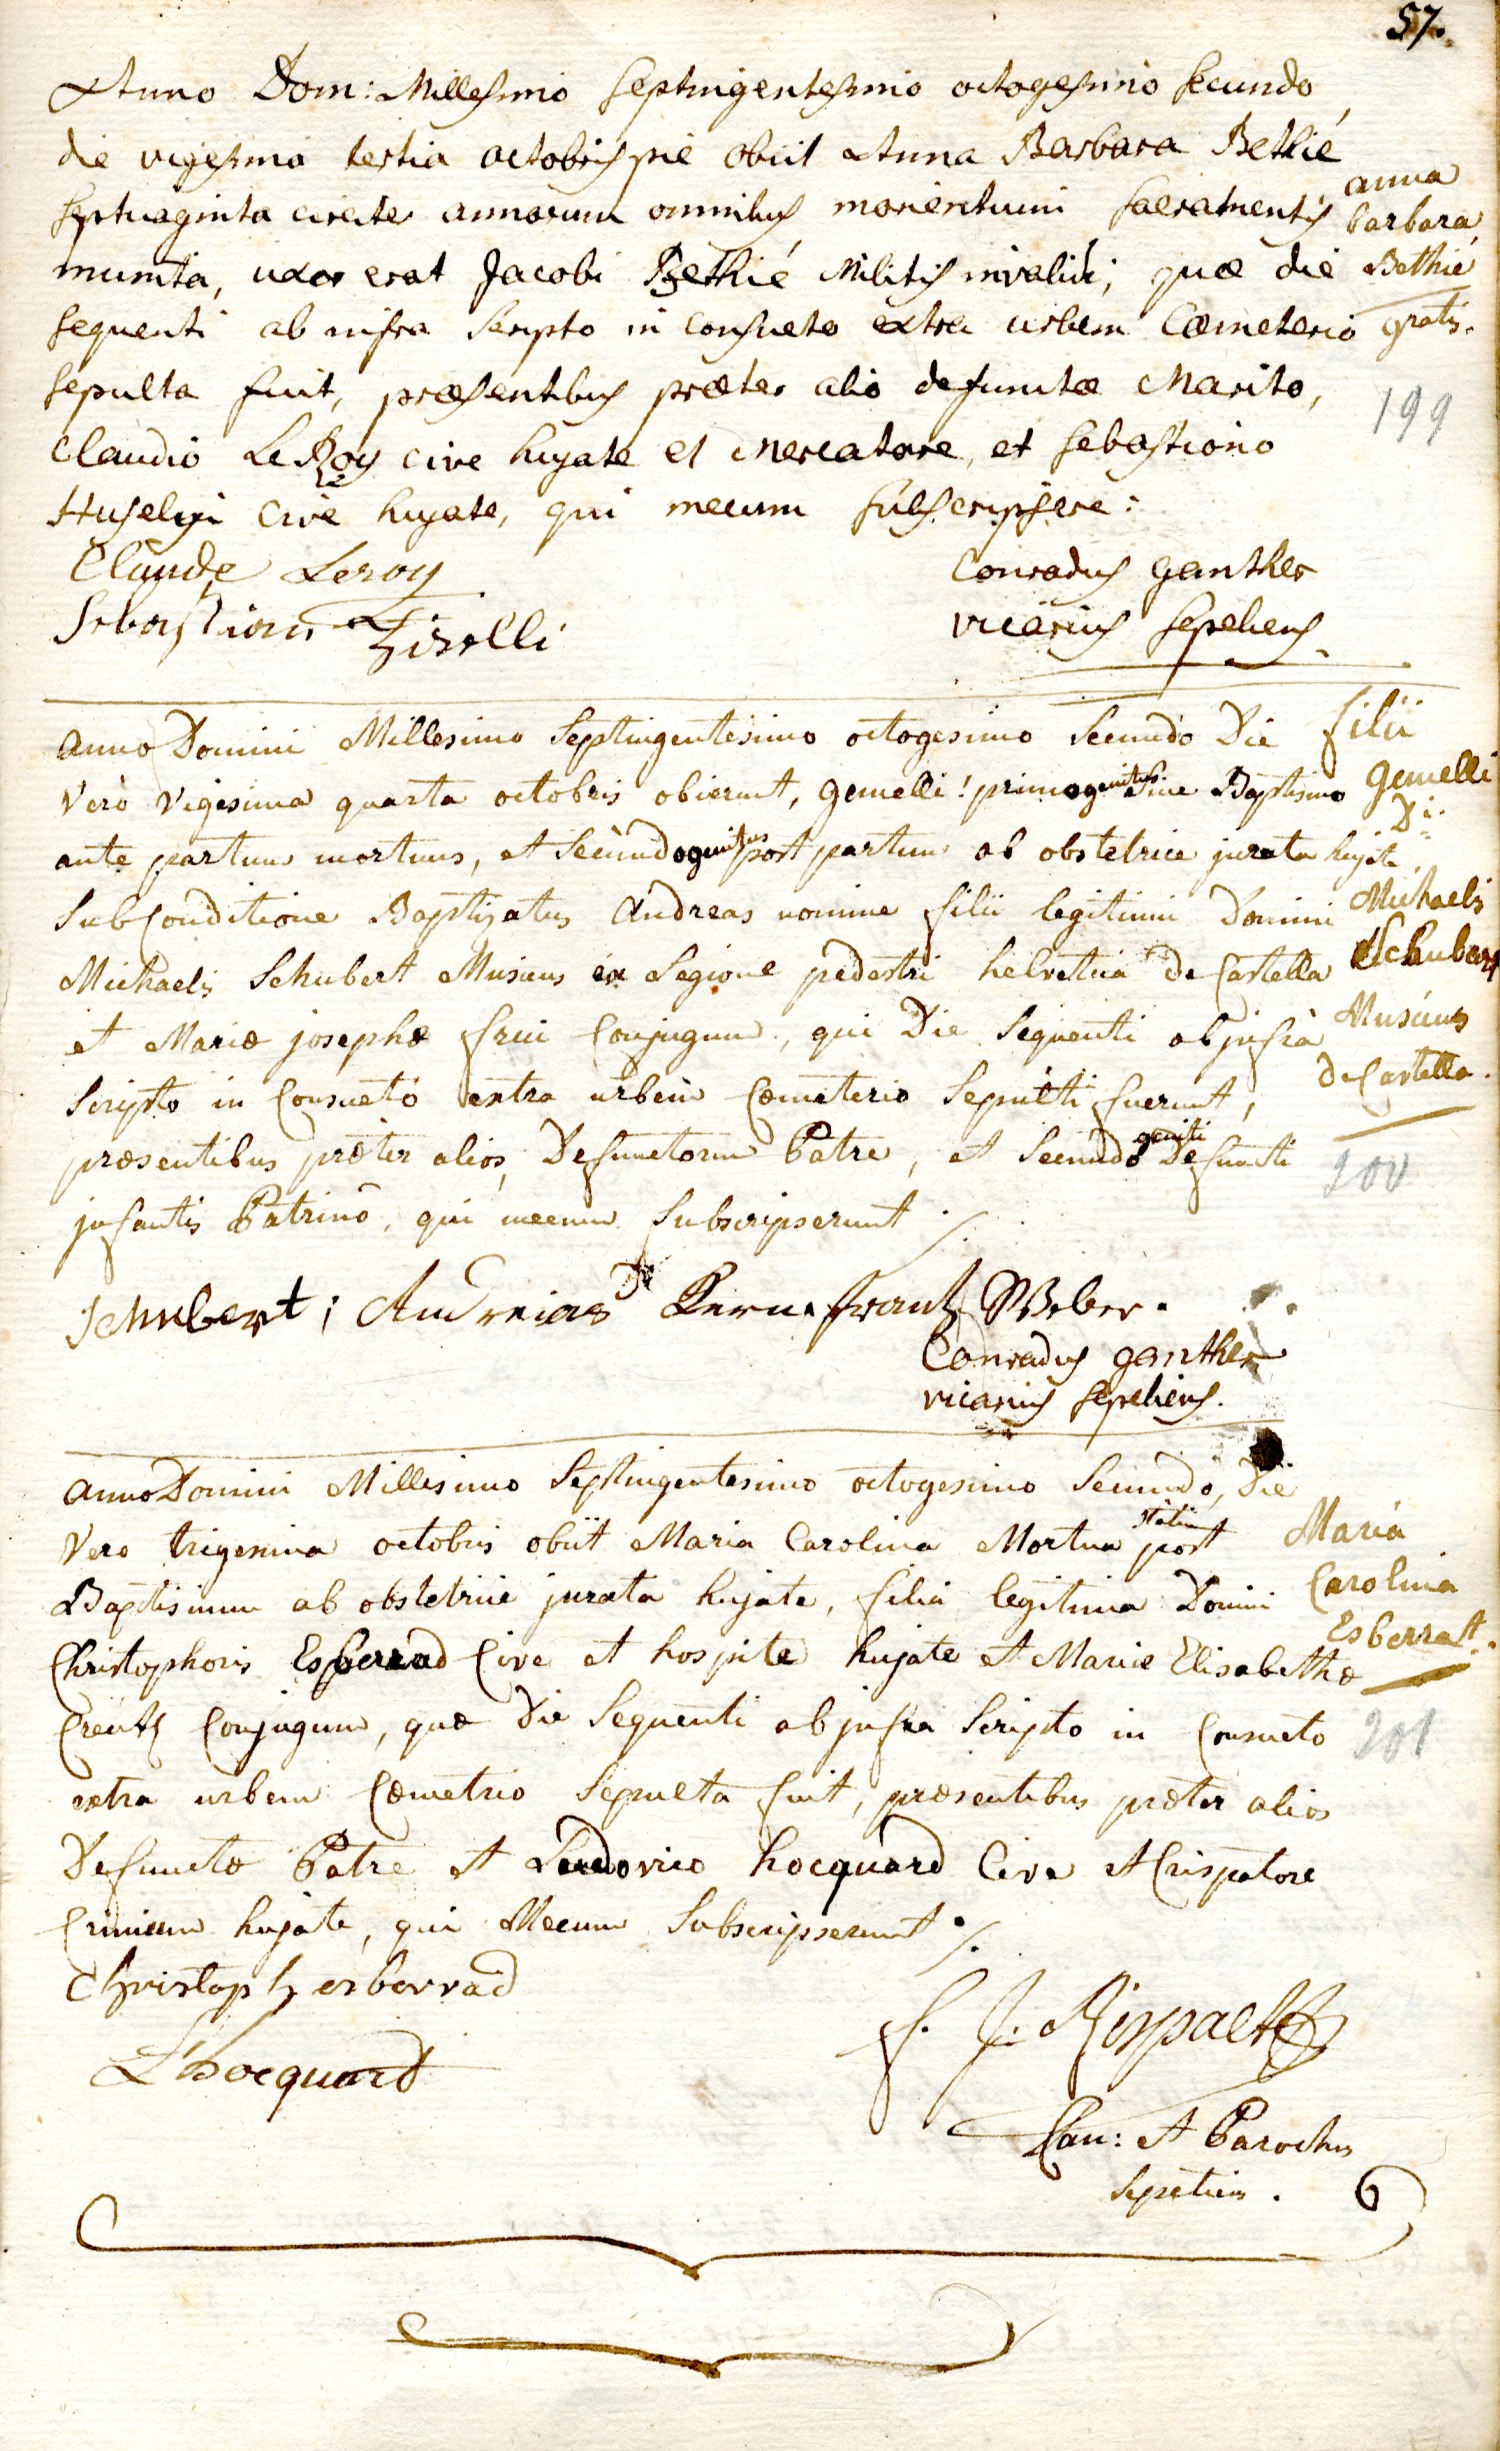 57.
Anno Dom: Millesimo septingentesimo octogesimo secundo,
die vigesima tertia octobris pie obiit Anna Barbara Bethié
septuaginta circiter annorum omnibus morientium sacramentis
munita, uxor erat Jacobi Bethié Militis invalidi, quæ die
sequenti ab infra scripto in consueto extra urbem Cœmeterio
sepulta fuit, præsentibus præter alio defunctæ Marito,
Claudio LeRoy cive hujate et mercatore, et sebastiano
cive hujate, qui mecum subscripsere:
anna
barbara
Bethié
gratis.
199
Claude Leroy
Sebastian
Conradus ganther
vicarius sepeliens.
anno Domini Millesimo Septingentesimo octogesimo Secundo Die
Vero Vigesima quarta octobris obierunt, gemelli! primogenitus Sine Baptismo
ante partum mortuus, et Secundogenitus post partum ab obstetrice jurata hujate
Sub Conditione Baptizatus Andreas nomine filii legitimi Domini
Michaelis Schubert Musicus ex Legione pedestri helvetica de Castella
et Mariæ josephæ frui Conjugum, qui Die Sequenti ab infrà
Scripto in Consueto extra urbem Cœmeterio Sepulti fuerunt,
præsentibus præter alios, Defunctorum Patre, et Secundo geniti Defuncti
infantis Patrino, qui mecum Subscripserunt ./.
filii
gemelli
Di.
Michaelis
Schubert
Musicus
de Castella.
200
Schubert; Andreias Kern. frantz Weber.
Conradus ganther
vicarius sepeliens.
anno Domini Millesimo Septingentesimo octogesimo Secundo, Die
Vero trigesima octobris obiit Maria Carolina Mortua statim post
Baptismum ab obstetrice jurata hujate, filia legitima Domini
Christophoris Esperrad Cive et hospite hujate et Mariæ Elisabethæ
Creutz Conjugum, quæ Die Sequenti ab infra Scripto in Consueto
extra urbem Cœmetrio Sepulta fuit, præsentibus præter alios
Defunctæ Patre et Ludovico hocquard Cive et Crispatore
Crinium hujate, qui Mecum Subscripserunt ./.
Maria
Carolina
Esberrat.
201
Christoph esberrad
L'hocquard
f. J.
Can: et Parochus
sepeliens.